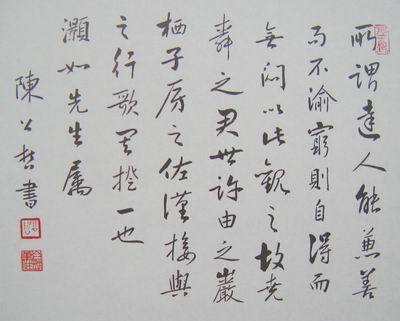 所謂達人能兼善
而不渝窮則自得而
無悶以此觀之故堯
舜之君世許由之巖
栖子房之佐漢接與
之行歌其揆一也
灝如先生屬
陳公哲書